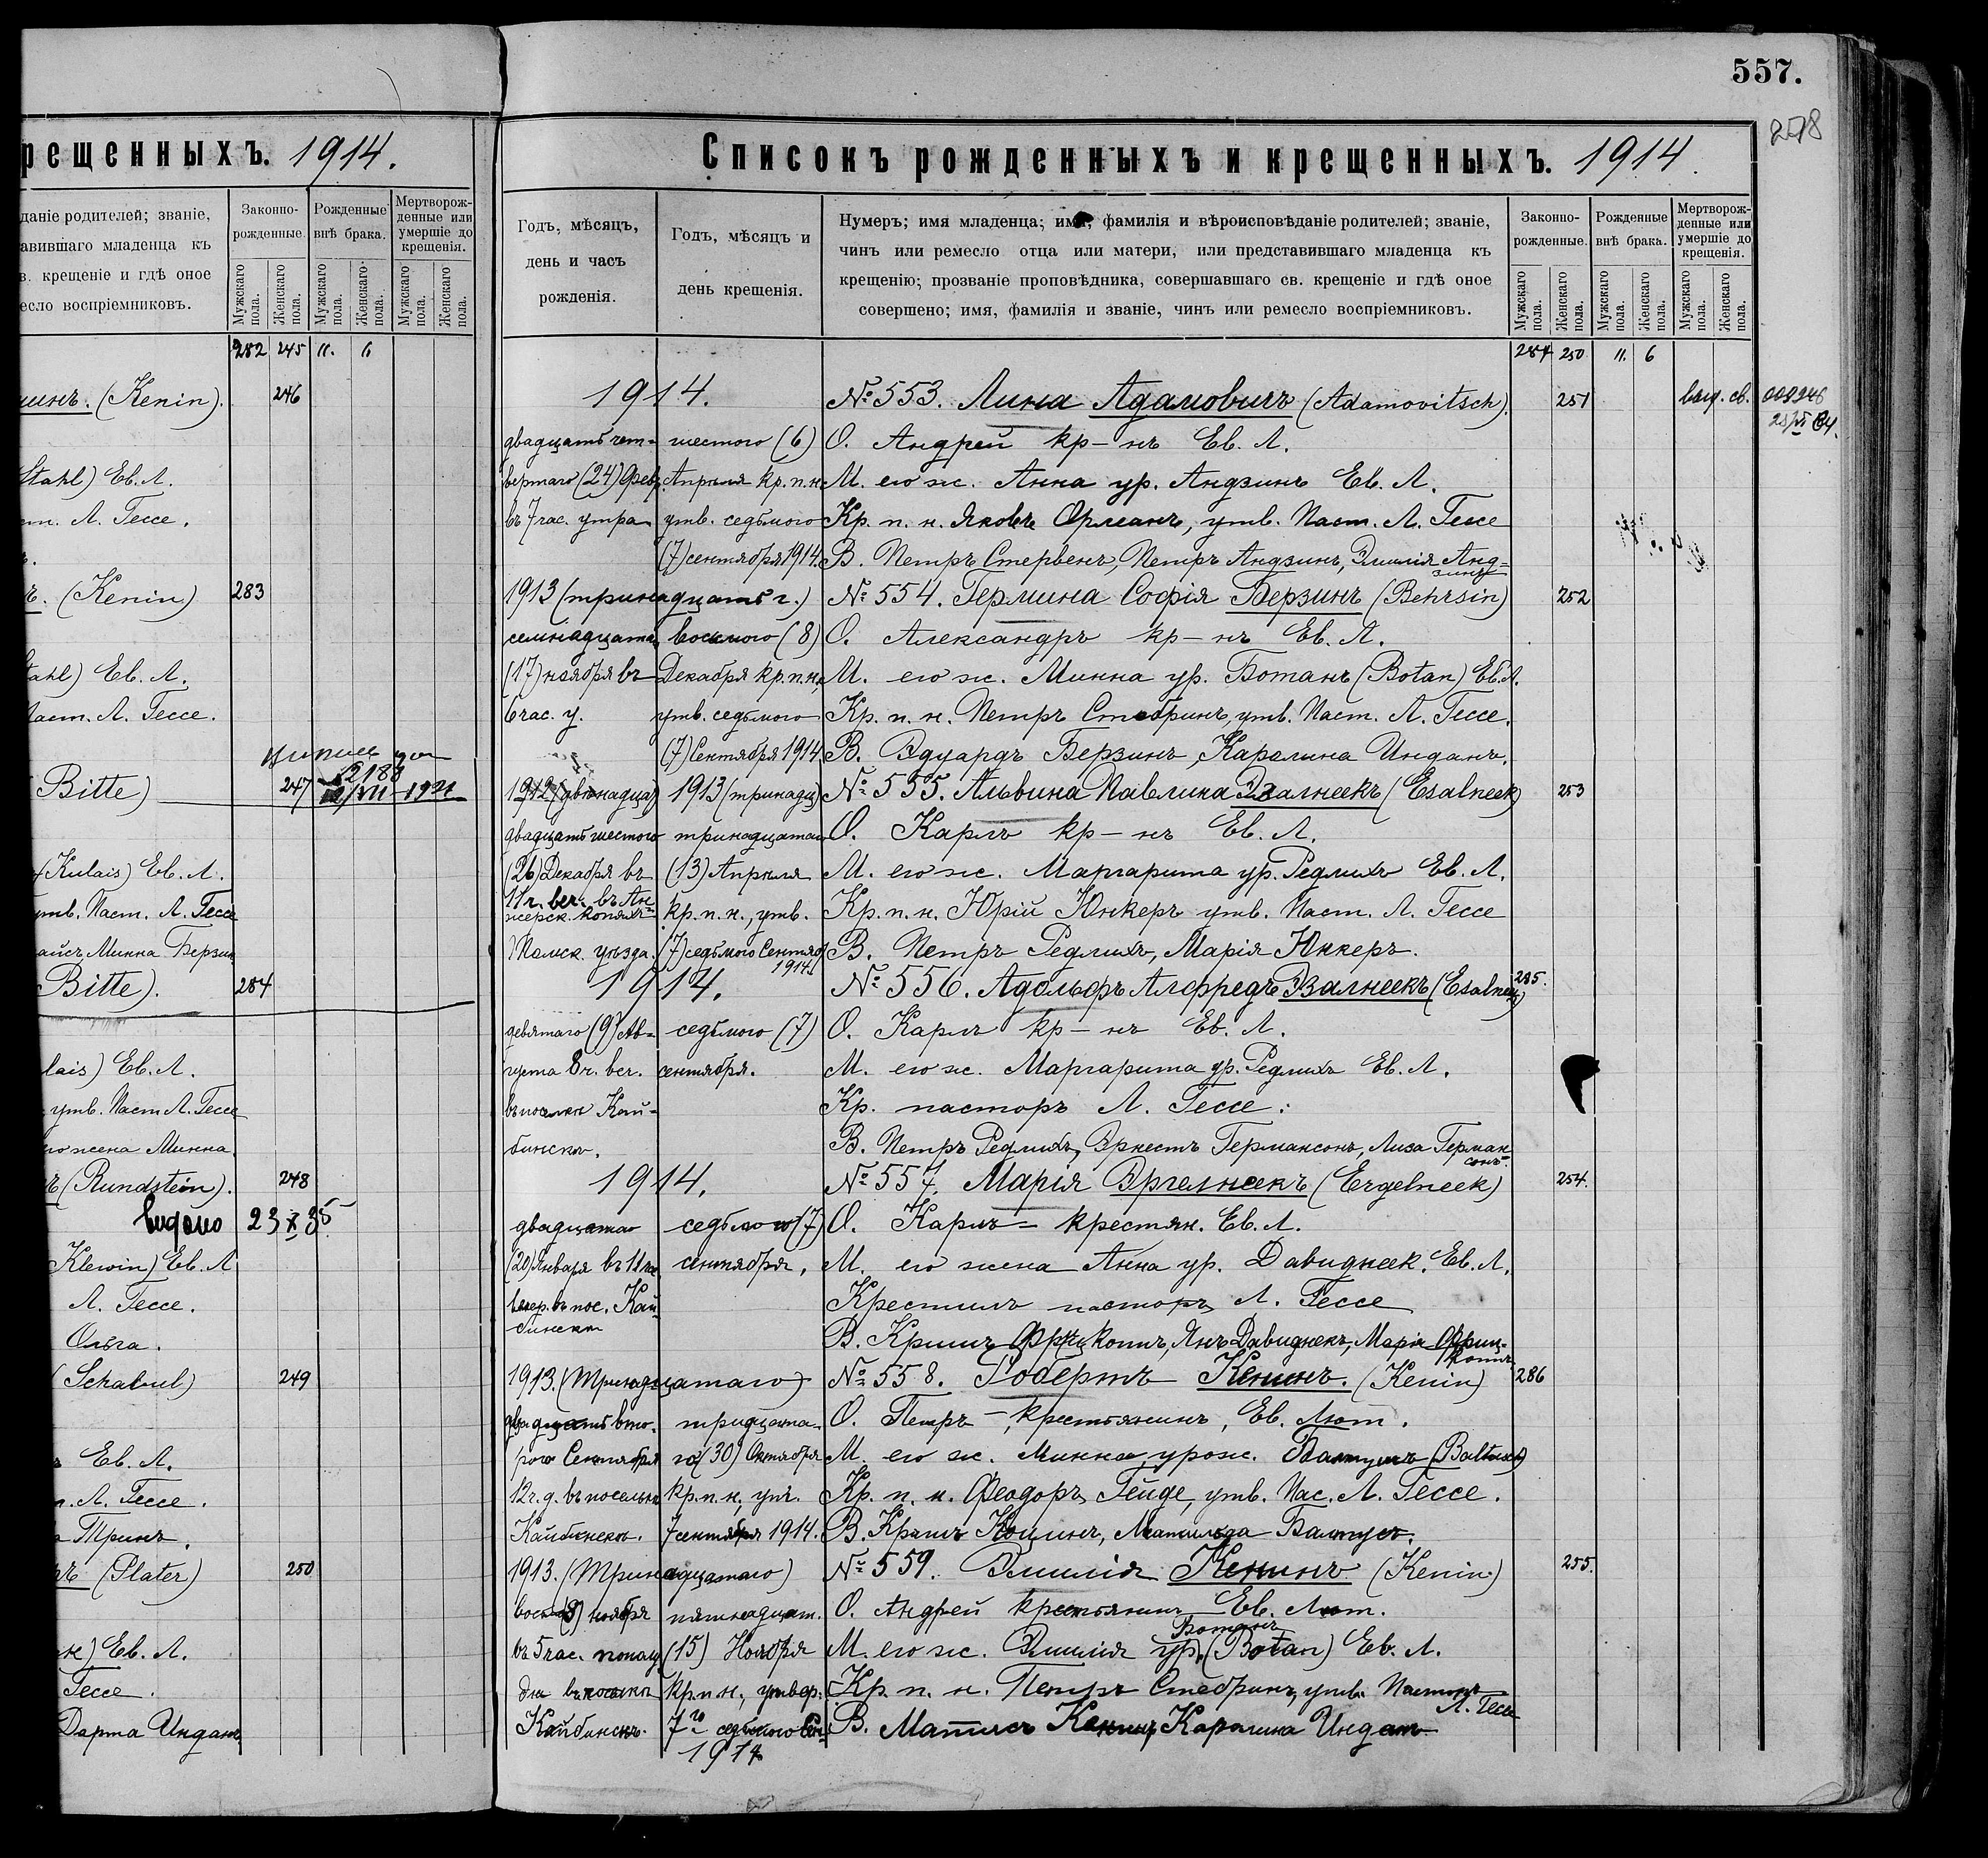 557.
278
рещенныхъ. 1914.
даніе родителей; званіе,
авившаго младенца къ
в. крещеніе и гдѣ оное
есло воспріемниковъ.
Законно-
рожденные.
Рожденные
внѣ брака.
Мертворож-
денные или
умершіе до
крещенія.
Мужскаго пола.
Женскаго пола.
Мужскаго пола.
Женскаго пола.
Мужскаго пола.
Женскаго пола.
282 245 11. 6
(Kenin). 246
Stahl) Ев. Л.
Л. Гессе.
(Kenin) 283
tahl) Ев. Л.
Паст. Л. Гессе.
2188
Bitte) 247
Kulais) Ев. Л.
утв. Паст. Л. Гессе
Минна Берзин
Bitte). 284
lais) Ев. Л.
утв. Паст Л. Гессе
жена Минна.
(Rundstein). 248
видано 23 X 35
Klewin) Ев. Л
Л. Гессе.
Ольга.
(Schabul) 249
Ев. Л.
Л. Гессе.
Тринъ.
(Plater) 250
Ев. Л.
Гессе.
Дарта Инданъ
Списокъ рожденныхъ и крещенныхъ. 1914.
Годъ, мѣсяцъ,
день и часъ
рожденія.
Годъ, мѣсяцъ и
день крещенія.
Нумеръ; имя младенца; имя, фамилія и вѣроисповѣданіе родителей; званіе,
чинъ или ремесло отца или матери, или представившаго младенца къ
крещенію; прозваніе проповѣдника, совершавшаго св. крещеніе и гдѣ оное
совершено; имя, фамилія и званіе, чинъ или ремесло воспріемниковъ.
Законно-
рожденные.
Рожденные
внѣ брака.
Мертворож-
денные или
умершіе до
крещенія.
Мужскаго пола.
Женскаго пола.
Мужскаго пола.
Женскаго пола.
Мужскаго пола.
Женскаго пола.
284 250 11. 6
1914. № 553. Лина Адамовичъ (Adamovitsch). 251 выд. св.
двадцать чет- шестого (6) О. Андрей кр-нъ Ев. Л.
вертаго (24) Фев. Апрѣля кр. п. н. М. его ж. Анна ур. Андзинъ Ев. Л.
въ 7 час. утра утв. седьмого Кр. п. н. Яковъ Орлеанъ, утв. Паст. Л. Гессе
(7) сентября 1914. В. Петръ Стервенъ, Петръ Андзинъ, Эмилія Анд-
зинъ
1913 (тринадцать г.) № 554. Гермина Софія Берзинъ (Behrsin) 252
семнадцата восьмого (8) О. Александръ кр-нъ Ев. Л.
(17) ноября въ Декабря кр. п. н., М. его ж. Минна ур. Ботанъ (Botan) Ев. Л.
6 час. у. утв. седьмого Кр. п. н. Петръ Стебринъ, утв. Паст. Л. Гессе.
(7) Сентября 1914 В. Эдуардъ Берзинъ, Каролина Инданъ.
1912 (двѣнадца) 1913 (тринадц) № 555. Альвина Павлина Эзалнеекъ (Esalneek) 253
двадцать шестого тринадцатаго О. Карлъ кр-нъ Ев. Л.
(26) Декабря въ (13) Апрѣля М. его ж. Маргарита ур. Редлихъ Ев. Л.
11 ч. веч. въ Ан-
жерск. копяхъ кр. п. н., утв. Кр. п. н. Юрій Юнкеръ утв. Паст. Л. Гессе
Томск. уѣзда. (7) седьмого Сентяб. В. Петръ Редлихъ, Марія Юнкеръ.
1914.
1914. № 556. Адольфъ Алфредъ Эзалнеекъ (Esalneek) 285.
девятаго (9) Ав- седьмого (7) О. Карлъ кр-нъ Ев. Л.
густа 8 ч. веч. сентября. М. его ж. Маргарита ур. Редлихъ Ев. Л.
въ поселкѣ Кай- Кр. пасторъ Л. Гессе.
бинскъ. В. Петръ Редлихъ, Эрнестъ Германсонъ, Лиза Герман-
сонъ.
1914. № 557. Марія Эргелнеекъ (Ergelneek) 254.
двадцатаго седьмого (7) О. Карлъ - крестян. Ев. Л.
(20) Января въ 11 час. сентября. М. его жена Анна ур. Давиднеек. Ев. Л.
вечер. въ пос. Кай- Крестилъ пасторъ Л. Гессе
бинскъ
В. Янъ Давиднекъ, Марія
1913. (Тринадцатаго) № 558. Робертъ Кенинъ. (Kenin) 286
двадцать вто- тридцата- О. Петръ - крестьянинъ, Ев. Лют.
рого Сентября го (30) Октября М. его ж. Минна урож. Балтушъ
12 ч. д. въ поселкѣ кр. п. н., утв. Кр. п. н. Феодоръ Гейде, утв. Пас. Л. Гессе.
Кайбинскъ. 7 сентября 1914. В. Матильда
1913. (Тринадцатаго) № 559. Эмилія Кенинъ (Kenin) 255.
(8) ноября пятнадцат. О. Андрей крестьянинъ Ев. Лют.
Ботанъ
въ 5 час. пополу (15) Ноября М. его ж. Эмилія ур. (Botan) Ев. Л.
дня въ поселкѣ кр. п. н., утвер. Кр. п. н. Петръ Стебринъ, утв. Пасторъ
Л. Гессе
Кайбинскъ. 7го седьмого Сен. В. Матисъ Кенинъ, Каролина Инданъ
1914